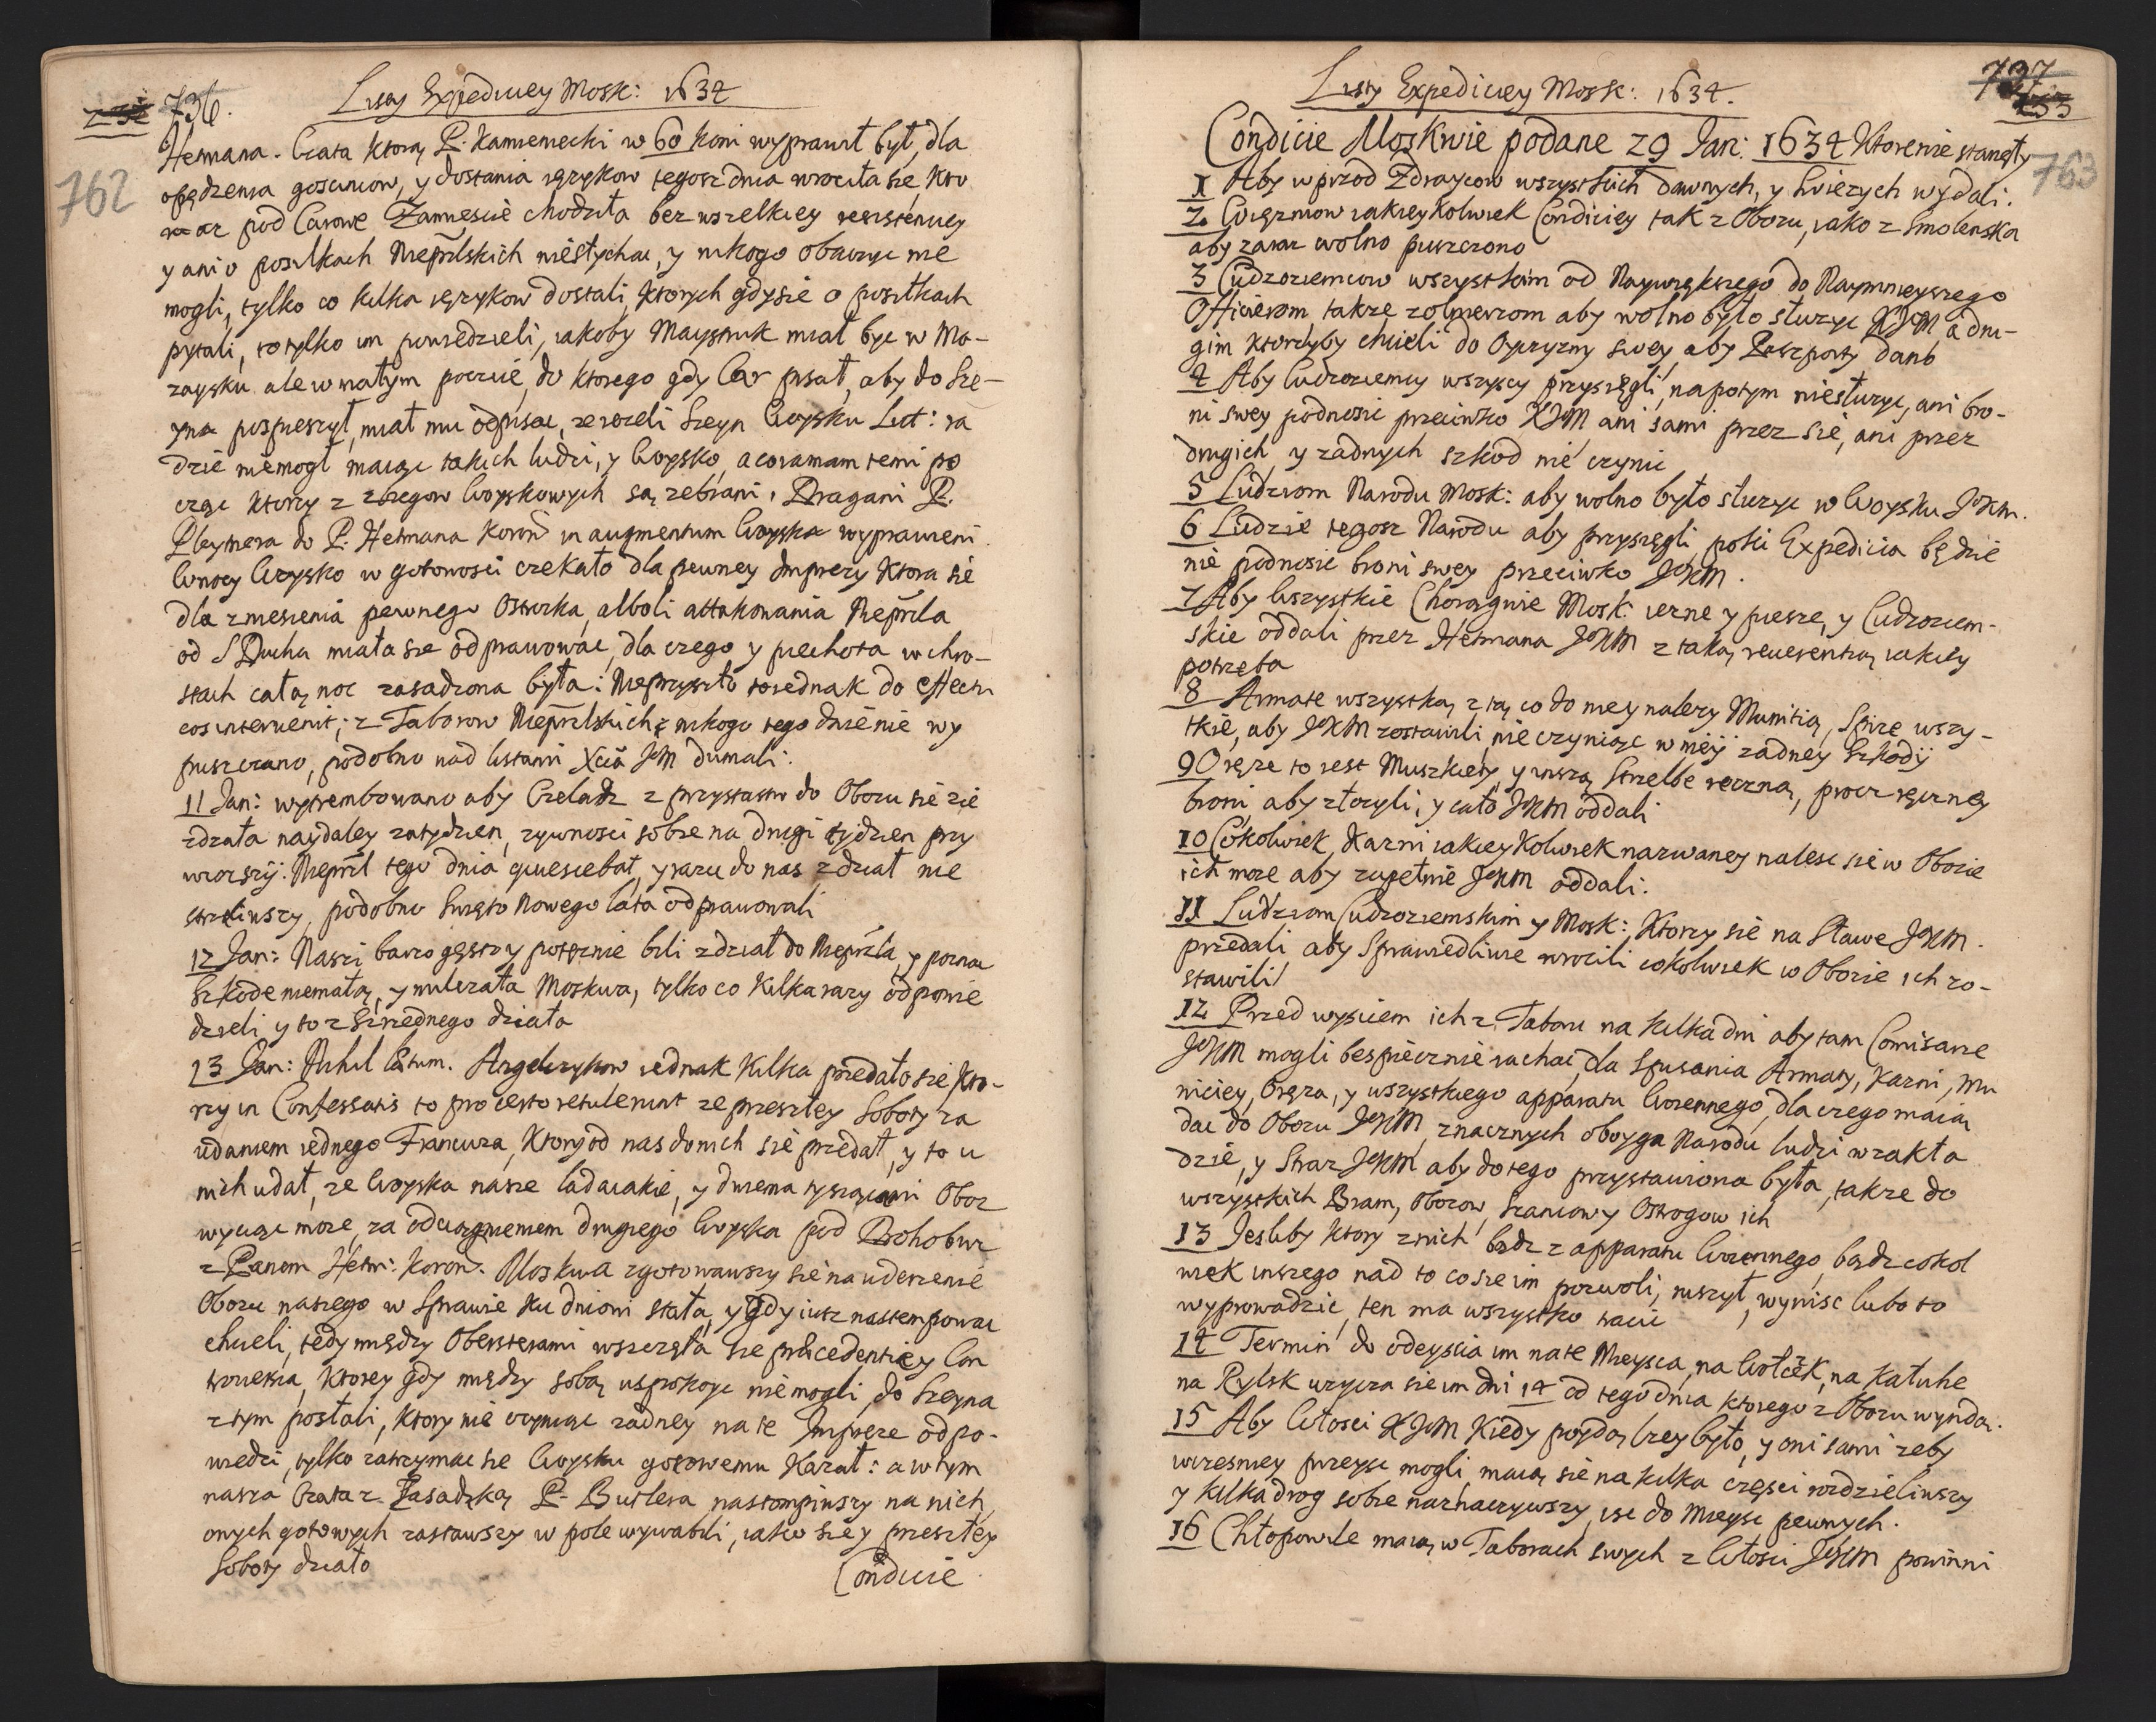 736.
Listy Expedicyey Mosk: 1634
762
Hetmana. Czata ktorą P. Kamieniecki w 60 koni wyprawił był, dla
opędzenia goscincow, y dostania ięzykow tegosz dnia wrociła się, kto
ra asz pod Carowe Zamiescie chodziła bez wszelkiey resistenciey
y ani o posilkach Nieprzlskich niesłychac, y nikogo obaczyc nie
mogli, tylko co kilka ięzykow dostali, ktorych gdy sie o posiłkach
pytali, to tylko im powiedzieli, iakoby Maystruk miał byc w Mo-
zaysku ale w małym poczcie, do ktorego gdy Car pisał, aby do Sze-
yna pospieszył, miał mu odpisac, ze iezeli Szeyn Woysku Lit: ra
dzic niemogł maiąc takich ludzi, y Woysko, a co ia mam temi po
cząc ktorzy z zbiegow Woyskowych są zebrani. Dragani P.
Pleymera do P. Hetmana Koron in augmentum Woyska wyprawieni.
W nocy Woysko w gotowosci czekało dla pewney Imprezy ktora się
dla zniesienia pewnego Ostrozka, alboli attakowania Nieprzla
od S Ducha miała sie odprawowac, dla czego y piechota w chro-
stach całą noc zasadzona była: Nieprzyszło to iednak do effectu
cos intervenit; z Taborow Nieprzlskich nikogo tego dnia nie wy
puszczano, podobno nad listami Xcia JM dumali.
11 Jan: wytrembowano aby Czeladz z przystastw do Obozu sie zie
zdzała naydaley za tydzien, zywnosci sobie na drugi tydzien przy
wiozszy: Nieprzl tego dnia quiescebat, y razu do nas z dział nie
strzeliwszy, podobno Swięto Nowego lata odprawowali
12 Jan: Naszi barzo gęsto y potęznie bili z dział do Nieprzla, y poznac
szkode niemałą, y milczała Moskwa, tylko co kilka razy odpowie
dzieli y to z srzednego działa
13 Jan: Nihil actum. Angelczykow iednak kilka przedało sie, kto-
rzy in Confessatis to pro certo retulerunt ze przeszłey Soboty za
udaniem iednego Francuza, ktory od nas do nich sie przedał, y to u
nich udał, ze Woyska nasze ladaiakie, y dwiema tysiącami Oboz
wyciąc moze, za odciągnieniem drugiego Woyska pod Drohobuz
z Panem Hetm: Koron. Moskwa zgotowawszy sie na uderzenie
Obozu naszego w Sprawie ku dniowi stała, y gdy iusz nastempowac
chcieli, tedy między Obersterami wszczęła sie praecedentiey Con
trowersia, ktorey gdy między sobą uspokoic niemogli, do Szeyna
z tym posłali, ktory nie czyniąc zadney na te Impreze odpo-
wiedzi, tylko zatrzymac sie Woysku gotowemu kazał: a w tym
nasza Czata z Zasadzką P. Butlera nastompiwszy na nich,
onych gotowych zastawszy w pole wywabili, iako się y przeszłey
Soboty działo
Condicie
Listy Expediciey Mosk: 1634.
737
763
Condicie Moskwie podane 29 Jan: 1634 Ktore nie stanęły
1 Aby wprzod Zdraycow wszystkich dawnych, y swiezych wydali.
2 Więzniow iakieykolwiek Condiciey tak z Obozu, iako z Smolenska
aby zaraz wolno puszczono
3 Cudzoziemcow wszystkim od Naywiększego do Naymnieyszego
Officierom takze zolnierzom aby wolno było słuzyc KJM a dru-
gim ktorzyby chcieli do Oyczyzny swey aby Paszporty dano
4 Aby Cudzoziemcy wszyscy przysięgli, napotym niesłuzyc, ani bro-
ni swey podnosic przeciwko KJM ani sami przez się, ani przez
drugich y zadnych szkod nie czynic
5 Ludziom Narodu Mosk: aby wolno było słuzyc w Woysku JKM.
6 Ludzie tegosz Narodu aby przysięgli, poki Expedicia będzie
nie podnosic broni swey przeciwko JKM.
7 Aby Wszystkie Chorągwie Mosk: iezne y piesze, y Cudzoziem-
skie oddali przez Hetmana JKM z taką reverentią iakiey
potrzeba
8 Armate wszystką z tą co do niey nalezy Munitią, Spize wszy-
tkie, aby JKM zostawili nie czyniąc w niey zadney szkody
9 Oręze to iest Muszkiety y inszą Strzelbe ręczną, procz ręczney
broni, aby złozyli, y cało JKM oddali
10 Cokolwiek Kazni iakieykolwiek nazwaney nalesc sie w Obozie
ich moze aby zupełnie JKM oddali.
11 Ludziom Cudzoziemskim y Mosk: Ktorzy się na Stawe JKM.
przedali, aby Sprawiedliwie wrocili cokolwiek w Obozie ich zo-
stawili
12 Przed wysciem ich z Taboru na kilka dni aby tam Comisarze
JKM mogli bespiecznie iachac, dla Spisania Armaty, Kazni, Mu
niciey, Oręza, y wszystkiego apparatu Woiennego, dla czego maią
dac do Obozu JKM znacznych oboyga Narodu ludzi w zakła
dzie, y Straz JKM aby do tego przystawiona była, takze do
wszystkich Bram, Obozow, Szancow y Ostrogow ich
13 Jesliby ktory z nich bądz z apparatu Woiennego, bądz cokol
wiek inszego nad to co sie im pozwoli, ruszył, wyniesc lubo to
wyprowadzic, ten ma wszystko tracic
14 Termin do odeyscia im na te Mieysca, na Wołcek, na Kałuhe
na Rylsk uzycza sie im dni 14 od tego dnia ktorego z Obozu wynidą.
15 Aby Włosci KJM kiedy poydą lzey było, y oni sami zeby
wczesniey przeysc mogli, maią sie na kilka częsci rozdzieliwszy
y kilka drog sobie naznaczywszy, isc do Mieysc pewnych.
16 Chłopow ile maią w Taborach swych z Włosci JKM powinni